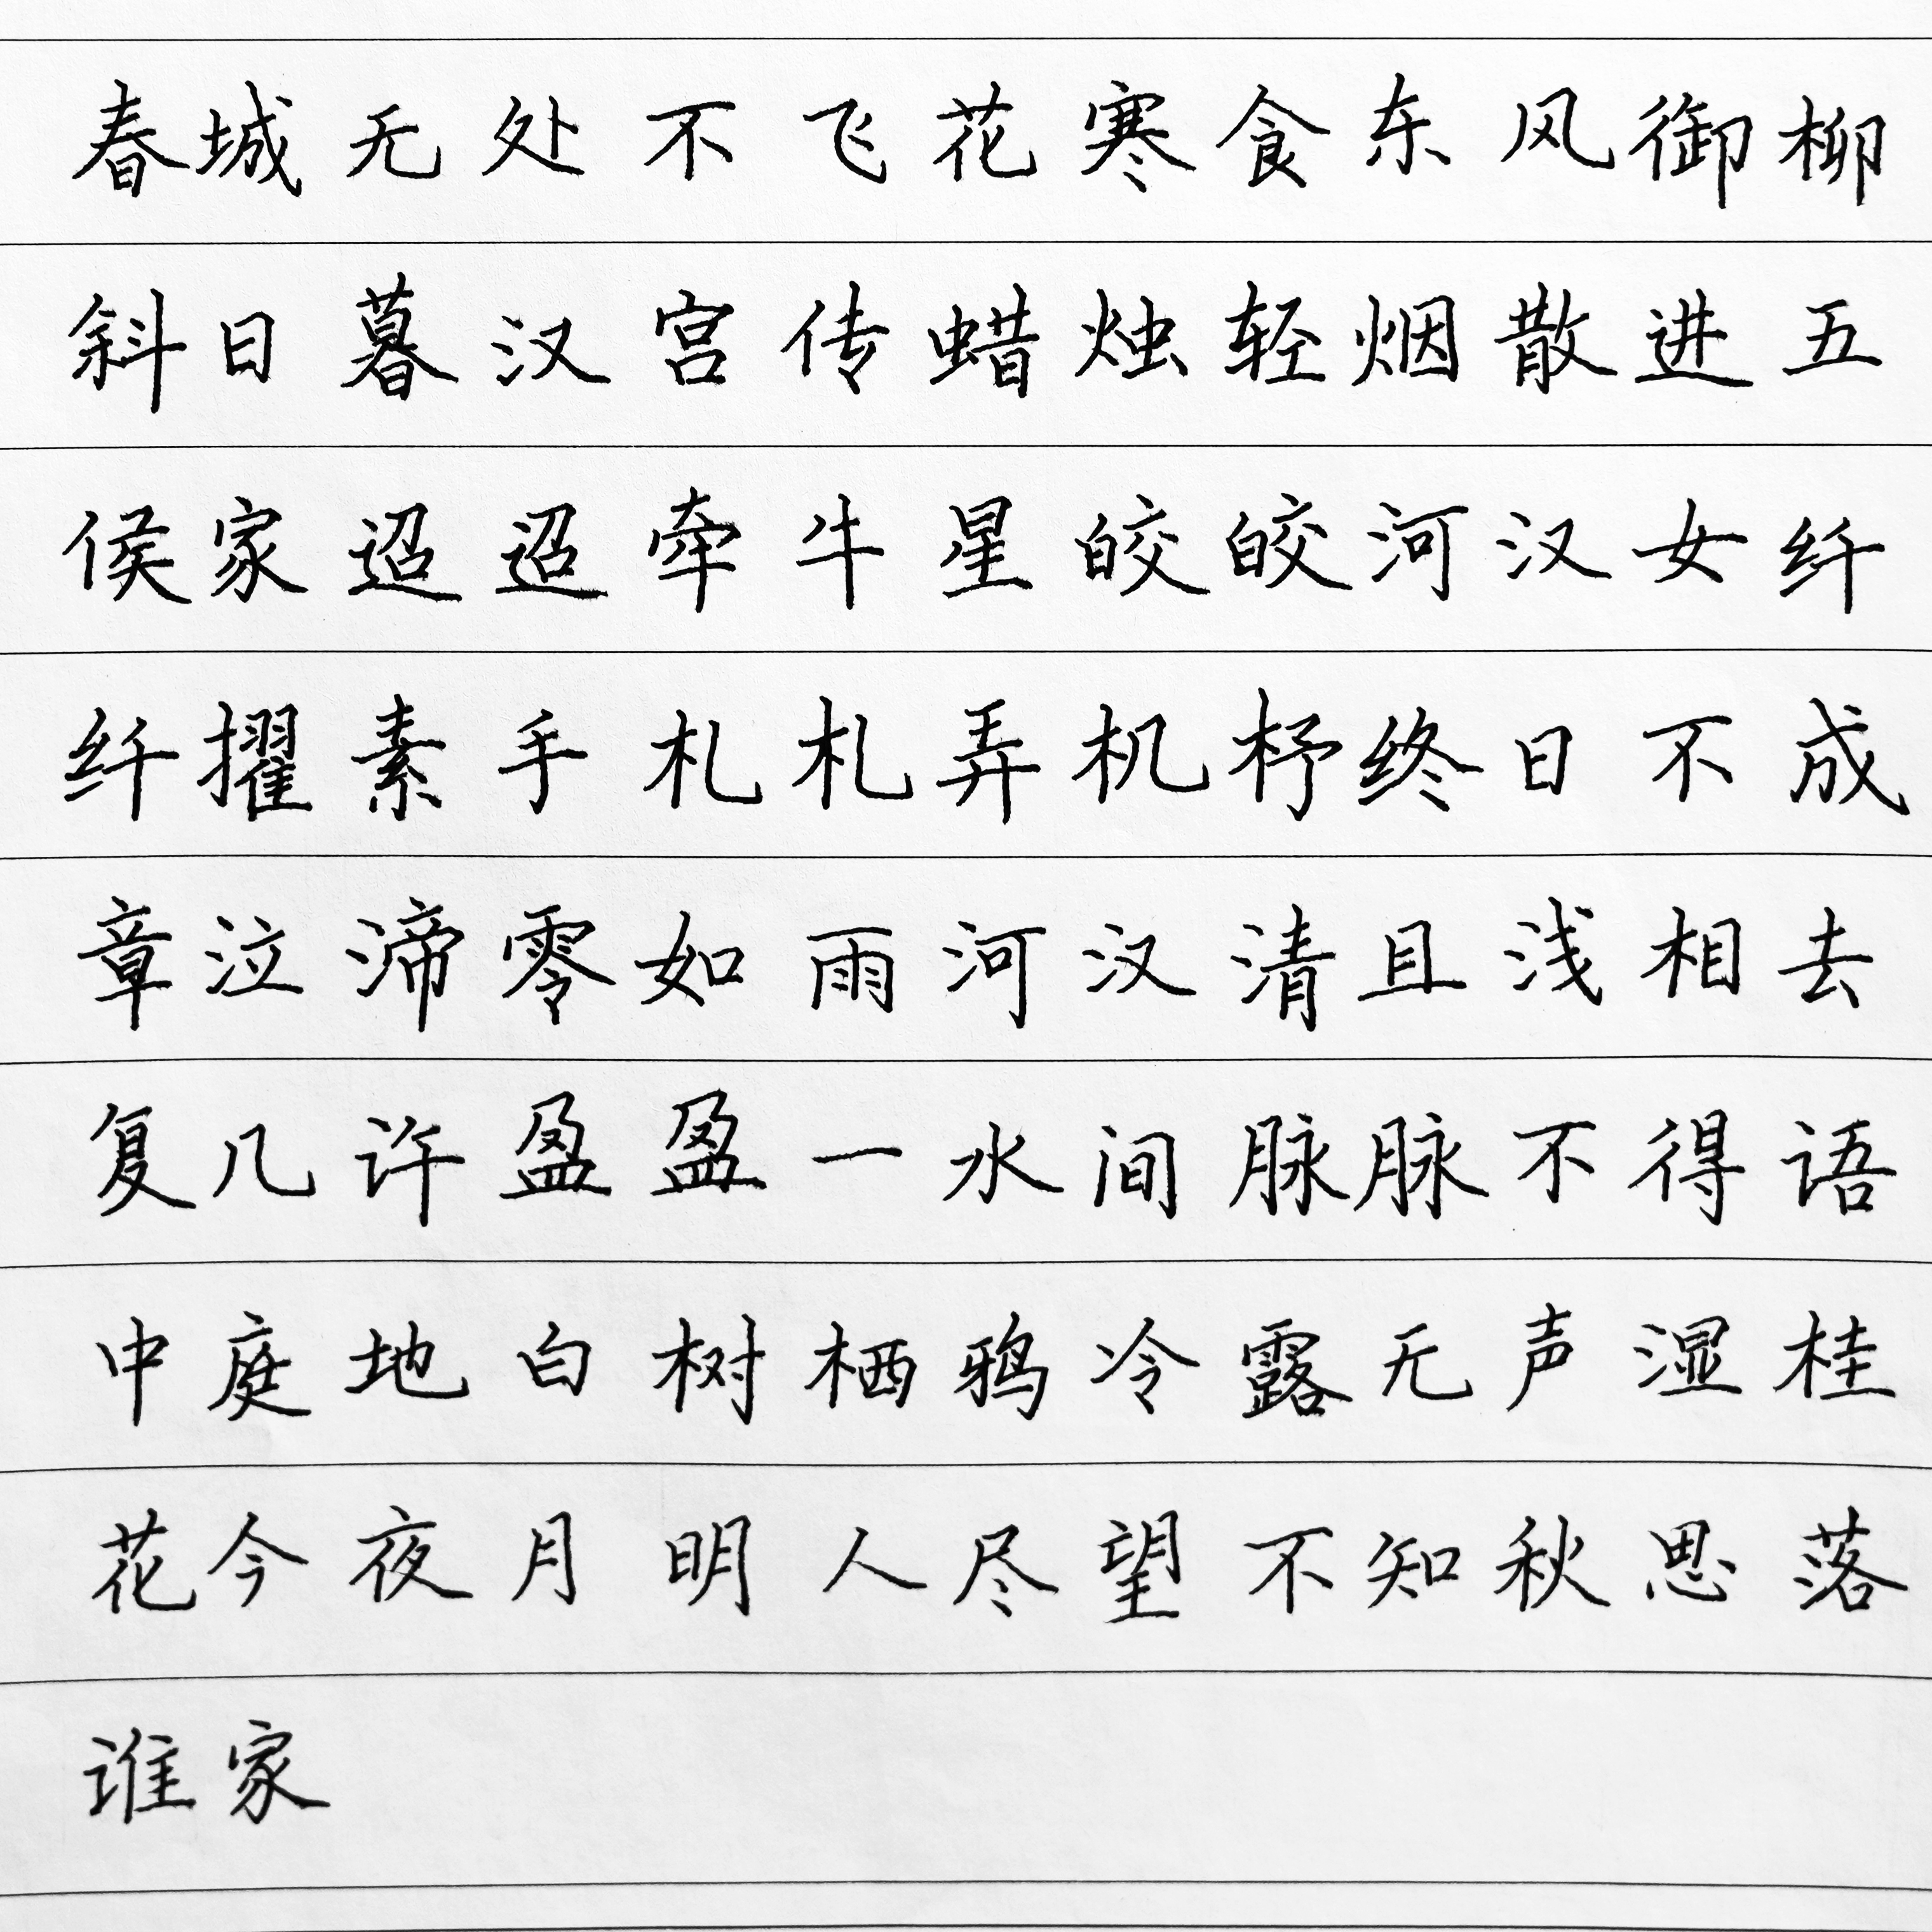 春城无处不飞花寒食东风御柳
斜日暮汉宫传蜡烛轻烟散进五
侯家迢迢牵牛星皎皎河汉女纤
纤擢素手札札弄机杼终日不成
章泣渧零如雨河汉清且浅相去
复几许盈盈一水间脉脉不得语
中庭地白树栖鸦冷露无声湿桂
花今夜月明人尽望不知秋思落
谁家